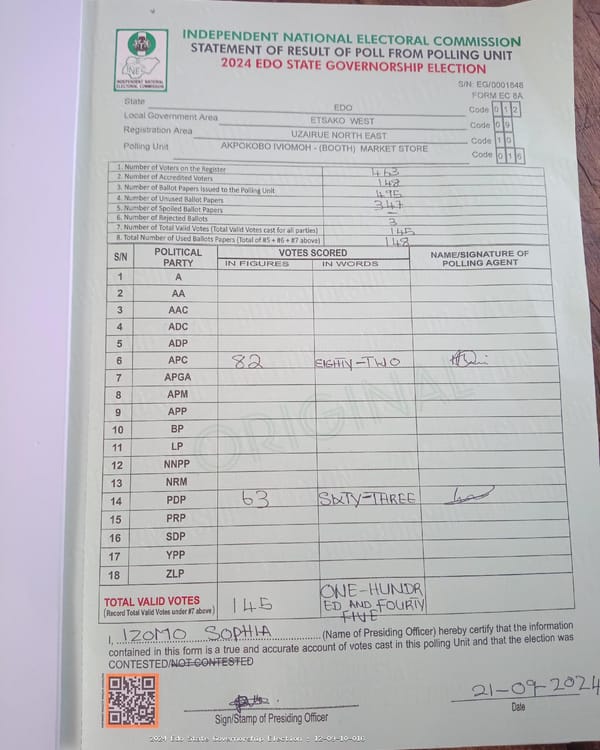 INDEPENDENT NATIONAL ELECTORAL COMMISSION
STATEMENT OF RESULT OF POLL FROM POLLING UNIT
2024 EDO STATE GOVERNORSHIP ELECTION
INEC
INDEPENDENT NATIONAL
ELECTORAL COMMISSION
S/N: EG/0001648
FORM EC 8A
State EDO Code 0 1 2
Local Government Area ETSAKO WEST Code 0 9
Registration Area UZAIRUE NORTH EAST Code 1 0
Polling Unit AKPOKOBO IVIOMOH - (BOOTH) MARKET STORE Code 0 1 6
1. Number of Voters on the Register 463
2. Number of Accredited Voters 148
3. Number of Ballot Papers Issued to the Polling Unit 495
4. Number of Unused Ballot Papers 347
5. Number of Spoiled Ballot Papers –
6. Number of Rejected Ballots 3
7. Number of Total Valid Votes (Total Valid Votes cast for all parties) 145
8. Total Number of Used Ballots Papers (Total of #5 + #6 + #7 above) 148
S/N POLITICAL PARTY VOTES SCORED NAME/SIGNATURE OF POLLING AGENT
IN FIGURES IN WORDS
1 A
2 AA
3 AAC
4 ADC
5 ADP
6 APC 82 EIGHTY-TWO
7 APGA
8 APM
9 APP
10 BP
11 LP
12 NNPP
13 NRM
14 PDP 63 SIXTY-THREE
15 PRP
16 SDP
17 YPP
18 ZLP
ORIGINAL
TOTAL VALID VOTES 145 ONE-HUNDR
(Record Total Valid Votes under #7 above) ED AND FOURTY
FIVE
I, IZOMO SOPHIA (Name of Presiding Officer) hereby certify that the information
contained in this form is a true and accurate account of votes cast in this polling Unit and that the election was
CONTESTED/NOT CONTESTED
21-09-2024
Sign/Stamp of Presiding Officer Date
2024 Edo State Governorship Election - 12-09-10-016